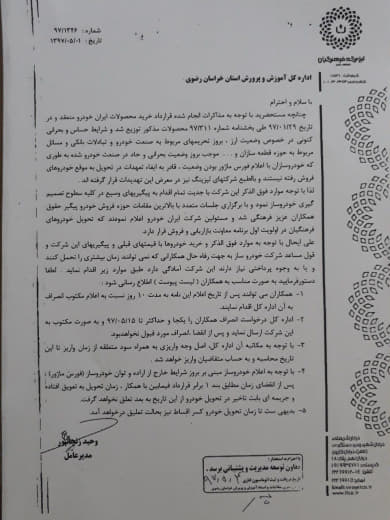 شماره : ۹۷/۱۳۴۶
تاریخ : ۱۳۹۷/۰۵/۰۱
اداره کل آموزش و پرورش استان خراسان رضوی
با سلام و احترام
چنانچه مستحضرید با توجه به مذاکرات انجام شده قرارداد خرید محصولات ایران خودرو منعقد و در
تاریخ ۹۷/۰۱/۲۹ طی بخشنامه شماره ۹۷/۳۱۱ محصولات مذکور توزیع شد و شرایط حساس و بحرانی
کنونی در خصوص وضعیت ارز ، بروز تحریمهای مربوط به صنعت خودرو و تبادلات بانکی و مسائل
مربوط به حوزه قطعه سازان و ... موجب بروز وضعیت بحرانی و حاد در صنعت خودرو شده به طوری
که خودروسازان با اعلام فورس ماژور بودن وضعیت ، قادر به ایفاء تعهدات در تحویل به موقع خودروهای
فروش رفته نیستند و بالطبع شرکتهای لیزینگ نیز در معرض این تهدیدات قرار گرفته اند.
لذا با توجه به موارد فوق الذکر این شرکت با جدیت تمام اقدام به پیگیریهای وسیع در کلیه سطوح تصمیم
گیری خودروساز نمود و با برگزاری جلسات متعدد با بالاترین مقامات حوزه فروش خودرو پیگیر حقوق
همکاران عزیز فرهنگی شد و مسئولین شرکت ایران خودرو اعلام نمودند که تحویل خودروهای
فرهنگیان در اولویت اول برنامه معاونت بازاریابی و فروش قرار دارد.
علی ایحال با توجه به موارد فوق الذکر و خرید خودروها با قیمتهای قبلی و پیگیریهای این شرکت و
قول مساعد شرکت خودرو ساز به جهت رفاه حال همکارانی که نمی توانند، زمان بیشتری را تحمل کنند
و یا به وجوه پرداختی نیاز دارند این شرکت آمادگی دارد طبق موارد زیر اقدام نماید. لطفا
دستورفرمایید به صورت مناسب به همکاران ( لیست پیوست ) اطلاع رسانی شود :
۱- همکاران می توانند پس از تاریخ اعلام این نامه به مدت ۱۰ روز نسبت به اعلام مکتوب انصراف
به آن اداره کل اقدام نمایند.
۲- اداره کل درخواست انصراف همکاران را یکجا و حداکثر تا ۹۷/۰۵/۱۵ و به صورت مکتوب به
این شرکت ارسال نماید و پس از انقضا ،انصراف مورد قبول نخواهدبود.
۳- با توجه به مکاتبه آن اداره کل، اصل وجه واریزی به همراه سود متعلقه از زمان واریز تا این
تاریخ محاسبه و به حساب متقاضیان واریز خواهد شد.
۴- با توجه به اعلام خودروساز مبنی بر بروز شرایط خارج از اراده و توان خودروساز (فورس ماژور) ،
پس از انقضای زمان مطابق بند ۱ برابر قرارداد فیمابین با همکار ، زمان تحویل به تعویق افتاده
و جریمه ای بابت تاخیر در تحویل خودرو از این تاریخ به بعد تعلق نخواهد گرفت.
۵- بدیهی ست تا زمان تحویل خودرو کسر اقساط نیز بحالت تعلیق درخواهد آمد.
مدیرعامل
معاون توسعه مدیریت و پشتیبانی برسد .